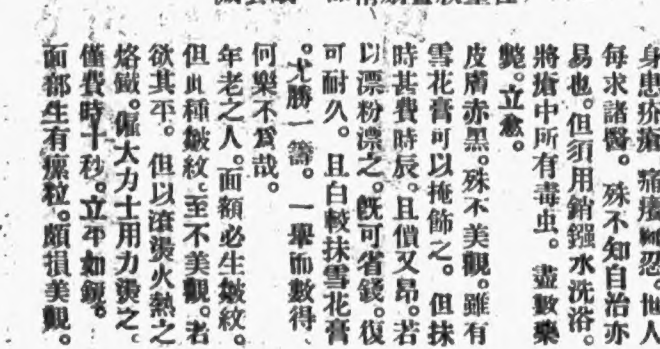 身患疥瘡。痛癢難忍。世人
每求諸醫。殊不知自治亦
易也。但須用銷鏹水洗浴。
將瘡中所有毒虫。盡數藥
斃。立愈。
皮膚赤黑。殊不美觀。雖有
雪花膏可以掩飾之。但抹
時甚費時辰。且價又昂。若
以漂粉漂之。旣可省錢。復
可耐久。且白較抹雪花膏
。尤勝一籌。一舉而數得、
何樂不爲哉。
年老之人。面額必生皴紋。
但此種皴紋。至不美觀。若
欲其平。但以滾燙火熱之
烙鐵。僱大力士用力燙之、
僅費時十秒。立平如鏡。
面部生有瘰粒。頗損美觀。